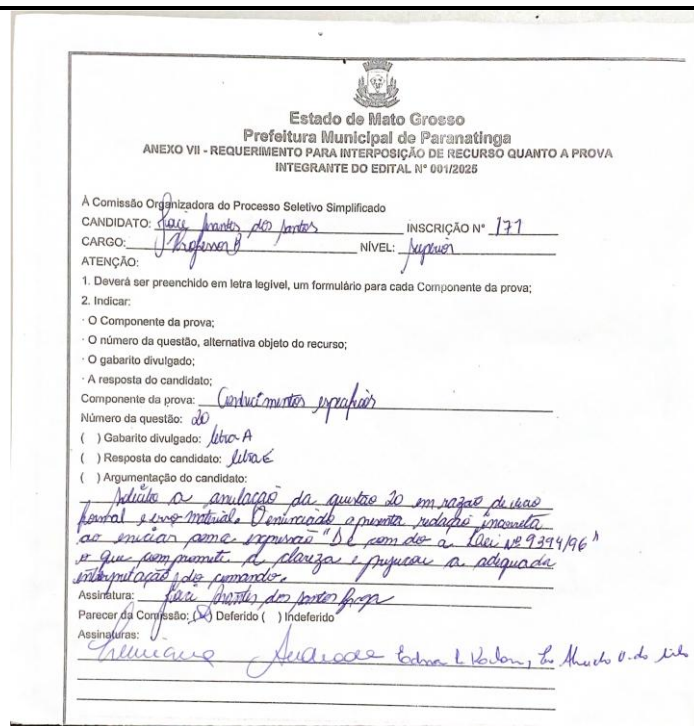 Estado de Mato Grosso
Prefeitura Municipal de Paranatinga
ANEXO VII - REQUERIMENTO PARA INTERPOSIÇÃO DE RECURSO QUANTO A PROVA
INTEGRANTE DO EDITAL Nº 001/2025
À Comissão Organizadora do Processo Seletivo Simplificado
CANDIDATO: dos Santos INSCRIÇÃO Nº 171
CARGO: Professor B NÍVEL: Superior
ATENÇÃO:
1. Deverá ser preenchido em letra legível, um formulário para cada Componente da prova;
2. Indicar:
· O Componente da prova;
· O número da questão, alternativa objeto do recurso;
· O gabarito divulgado;
· A resposta do candidato;
Componente da prova: Conhecimentos específicos
Número da questão: 20
( ) Gabarito divulgado: letra A
( ) Resposta do candidato: letra E
( ) Argumentação do candidato:
Solicito a anulação da questão 20 em razão de vício
formal e erro material. O enunciado apresenta redação incorreta
ao iniciar com a expressão "De com do a Lei Nº 9394/96"
o que compromete a clareza e a adequada
interpretação do comando.
Assinatura: dos Santos
Parecer da Comissão: (X) Deferido ( ) Indeferido
Assinaturas:
Andrade